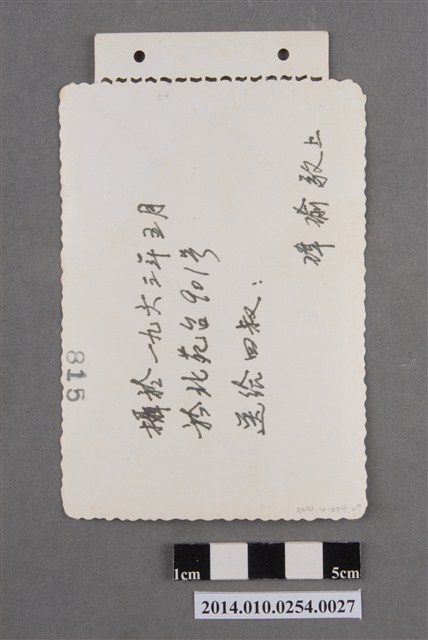 攝於一九六三年五月
於北苑台901号
送给四叔：
瑋瑜敬上
815
2014.10.254.27
1cm
5cm
2014.010.0254.0027